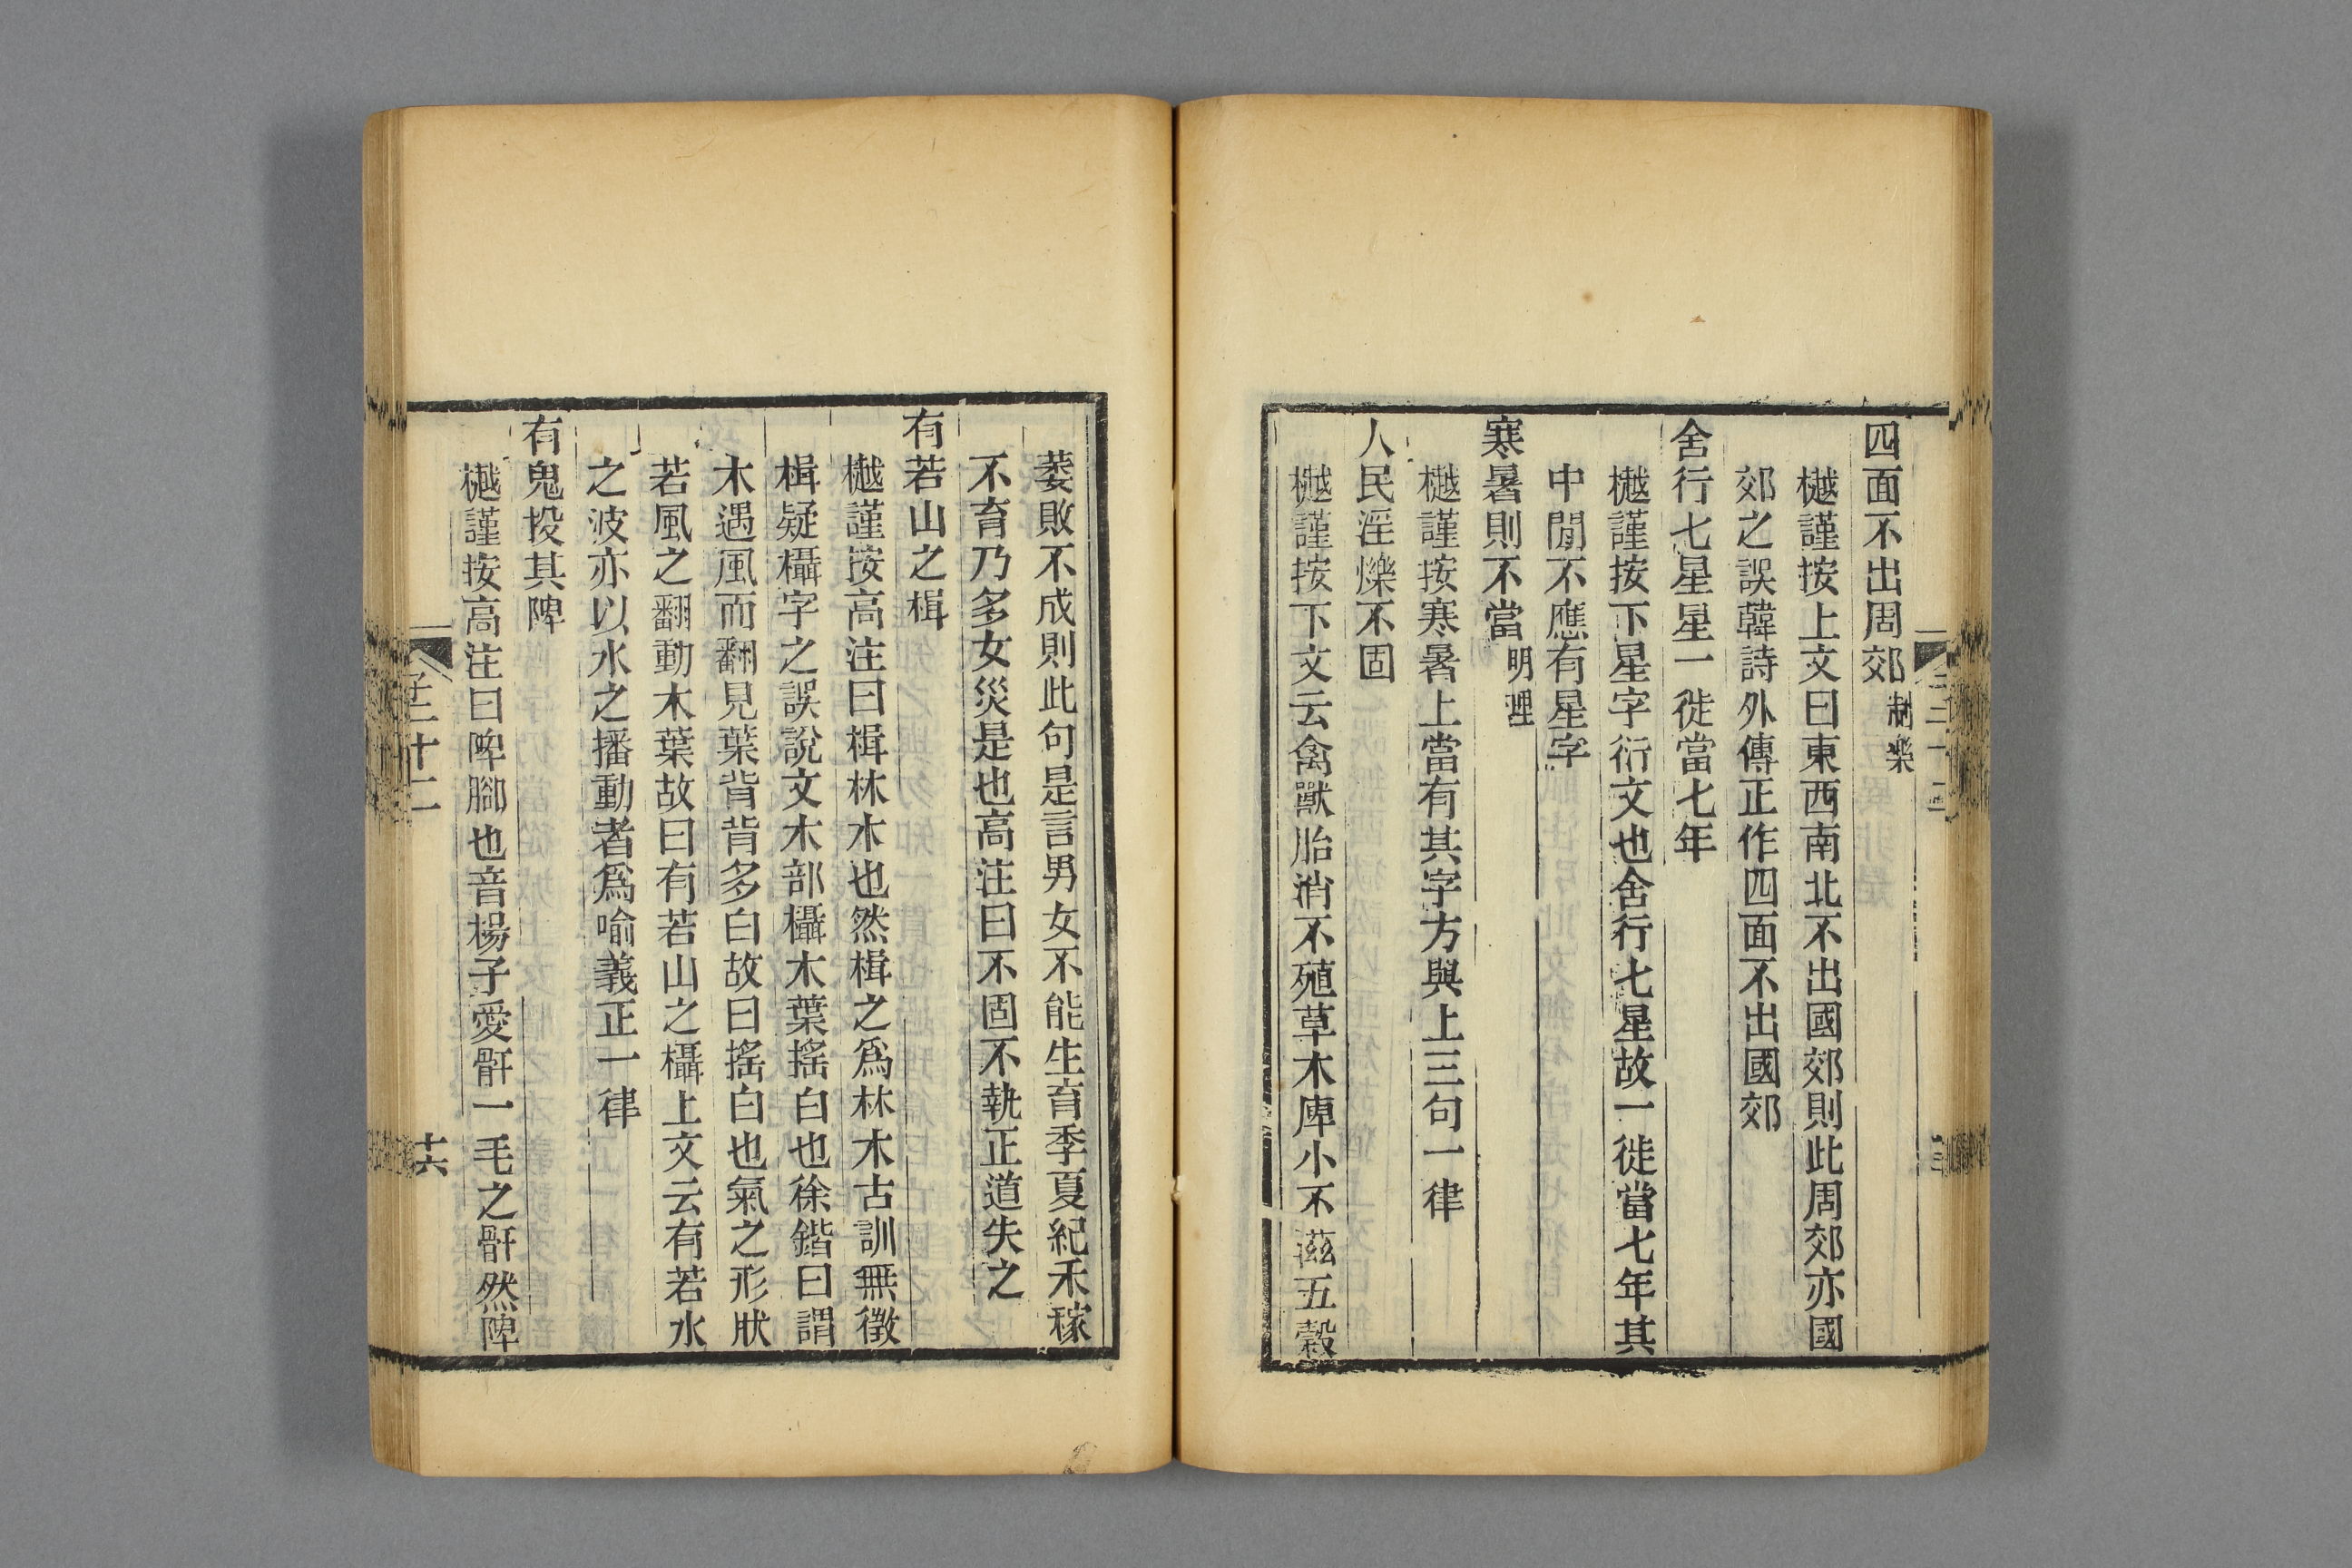 四面不出周郊制樂
樾謹按上文曰東西南北不出國郊則此周郊亦國
郊之誤韓詩外傳正作四面不出國郊
舍行七星星一徙當七年
樾謹按下星字衍文也舍行七星故一徙當七年其
中閒不應有星字
寒暑則不當明理
樾謹按寒暑上當有其字方與上三句一律
人民淫爍不固
樾謹按下文云禽獸胎消不殖草木庳小不滋五穀
萎敗不成則此句是言男女不能生育季夏紀禾稼
不育乃多女災是也高注曰不固不執正道失之
有若山之楫
樾謹按高注曰楫林木也然楫之爲林木古訓無徵
楫疑欇字之誤說文木部欇木葉搖白也徐鍇曰謂
木遇風而翻見葉背背多白故曰搖白也氣之形狀
若風之翻動木葉故曰有若山之欇上文云有若水
之波亦以水之播動者爲喻義正一律
有鬼投其陴
樾謹按高注曰陴腳也音楊子愛骭一毛之骭然陴
子二十二
十六